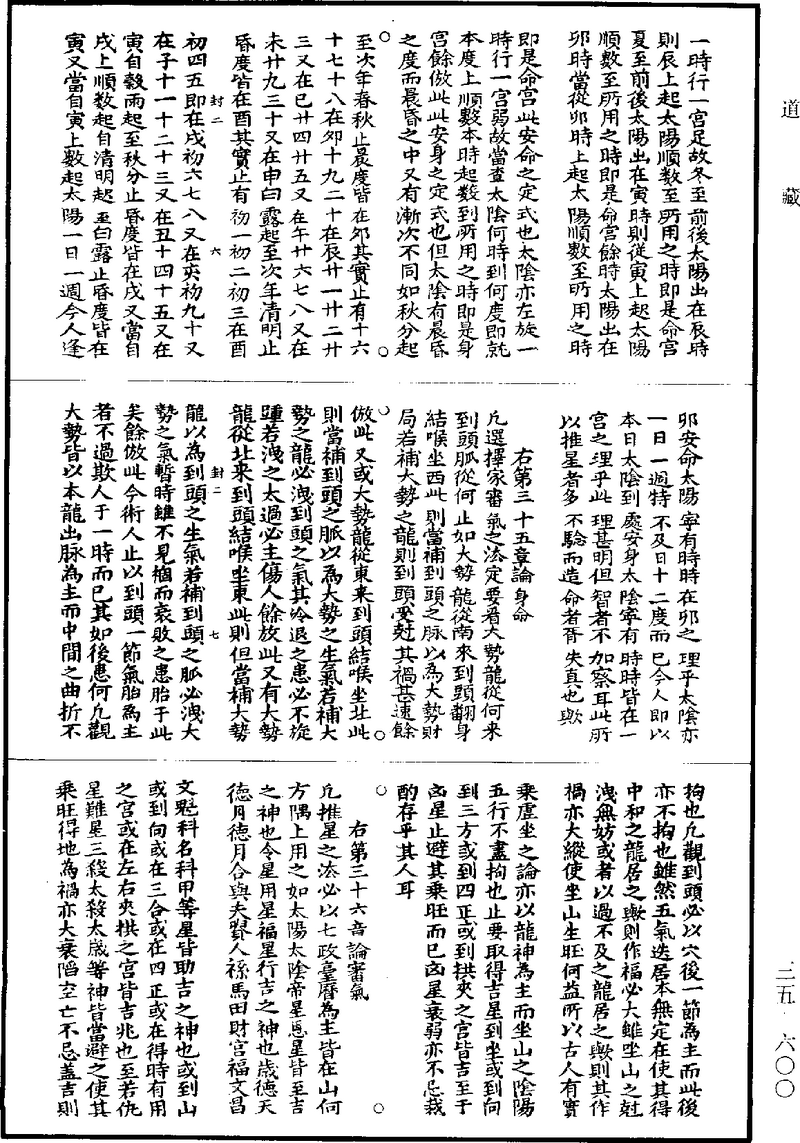 道藏
三五·六〇〇
一時行一宮足故冬至前後太陽出在辰時
則辰上起太陽順數至所用之時即是命宮
夏至前後太陽出在寅時則從寅上起太陽
順數至所用之時即是命宮餘時太陽出在
卯時當從卯時上起太陽順數至所用之時
即是命宮此安命之定式也太陰亦左旋一
時行一宮弱故當查太陰何時到何度即就
本度上順數本時起數到所用之時即是身
宮餘倣此此安身之定式也但太陰有晨昏
之度而晨昏之中又有漸次不同如秋分起
至次年春秋止晨度皆在卯其實止有十六
十七十八在卯十九二十在辰廿一廿二廿
三又在巳廿四廿五又在午廿六七八又在
未廿九三十又在申白露起至次年清明止
昏度皆在酉其實止有初一初二初三在酉
封二 六
初四五即在戌初六七八又在亥初九十又
在子十一十二十三又在丑十四十五又在
寅自穀雨起至秋分止昏度皆在戌又當自
戌上順數起自清明起至白露止昏度皆在
寅又當自寅上數起太陽一日一週今人逢
卯安命太陽寧有時時在卯之理乎太陰亦
一日一週特不及日十二度而已今人即以
本日太陰到處安身太陰寧有時時皆在一
宮之理乎此理甚明但智者不加察耳此所
以推星者多不驗而造命者胥失真也歟
右第三十五章論身命
凡選擇家審氣之法定要看大勢龍從何來
到頭脈從何止如大勢龍從南來到頭翻身
結喉坐西此則當補到頭之脈以為大勢財
局若補大勢之龍則到頭受尅其禍甚速餘
倣此又或大勢龍從東來到頭結喉坐北此
則當補到頭之脈以為大勢之生氣若補大
勢之龍必洩到頭之氣其冷退之患必不旋
踵若洩之太過必主傷人餘放此又有大勢
龍從北来到頭結喉坐東此則但當補大勢
封二 七
龍以為到頭之生氣若補到頭之脈必洩大
勢之氣暫時雖不見禍而衰敗之患胎于此
矣餘倣此今術人止以到頭一節氣胎為主
者不過欺人于一時而已其如後患何凡觀
大勢皆以本龍出脉為主而中間之曲折不
拘也凡觀到頭必以穴後一節為主而此後
亦不拘也雖然五氣迭居本無定在使其得
中和之龍居之歟則作福必大雖坐山之尅
洩無妨或者以過不及之龍居之歟則其作
禍亦大縱使坐山生旺何益所以古人有實
乘虛坐之論亦以龍神為主而坐山之陰陽
五行不盡拘也止要取得吉星到坐或到向
到三方或到四正或到拱夾之宮皆吉至于
凶星止避其乘旺而已凶星衰弱亦不忌裁
酌存乎其人耳
右第三十六章論審氣
凡推星之法必以七政臺曆為主皆在山何
方隅上用之如太陽太陰帝星恩星皆至吉
之神也令星用星福星行吉之神也歲德天
德月德月合與夫貴人祿馬田財宮福文昌
文魁科名科甲等星皆助吉之神也或到山
或到向或在三合或在四正或在得時有用
之宮或在左右夾拱之宮皆吉兆也至若仇
星難星三殺太殺太歲等神皆當避之使其
乘旺得地為禍亦大衰陷空亡不忌盖吉則